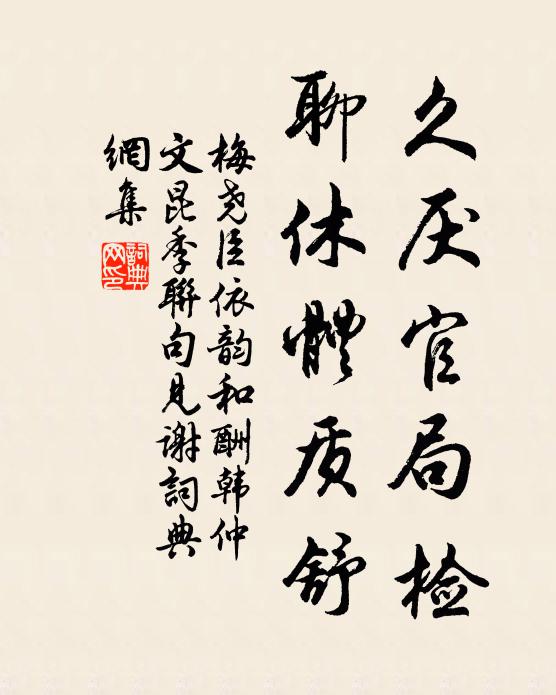 久厌官局检
聊休體质舒
梅尧臣依韵和酬韩仲
文昆季聯句见谢詞典
網集
詞典
网印